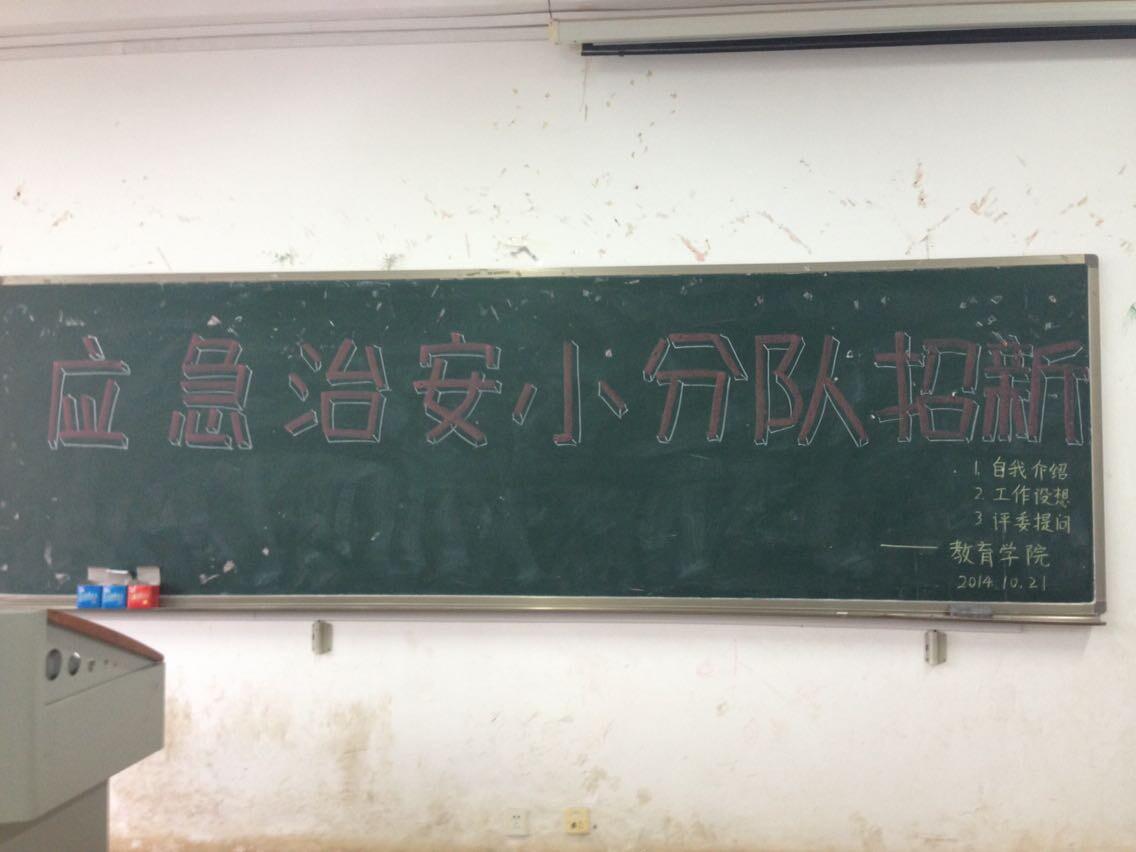 应急治安小分队招新
1. 自我介绍
2. 工作设想
3 评委提问
——教育学院
2014.10.21